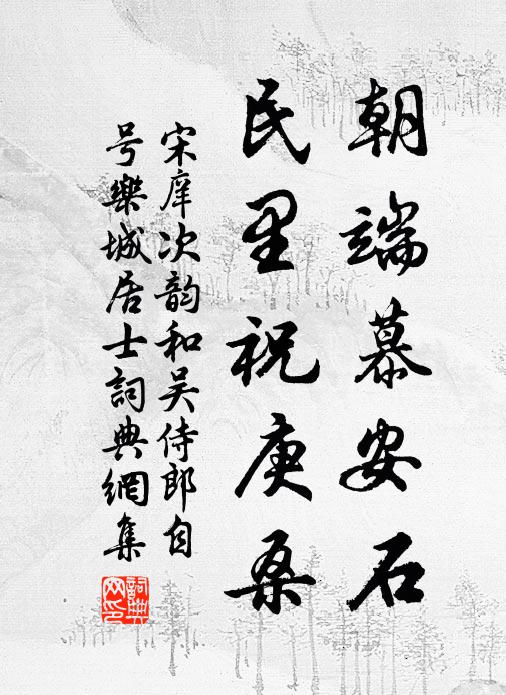 朝端慕安石
民里祝庚桑
宋庠次韵和吴侍郎自
号樂城居士詞典網集